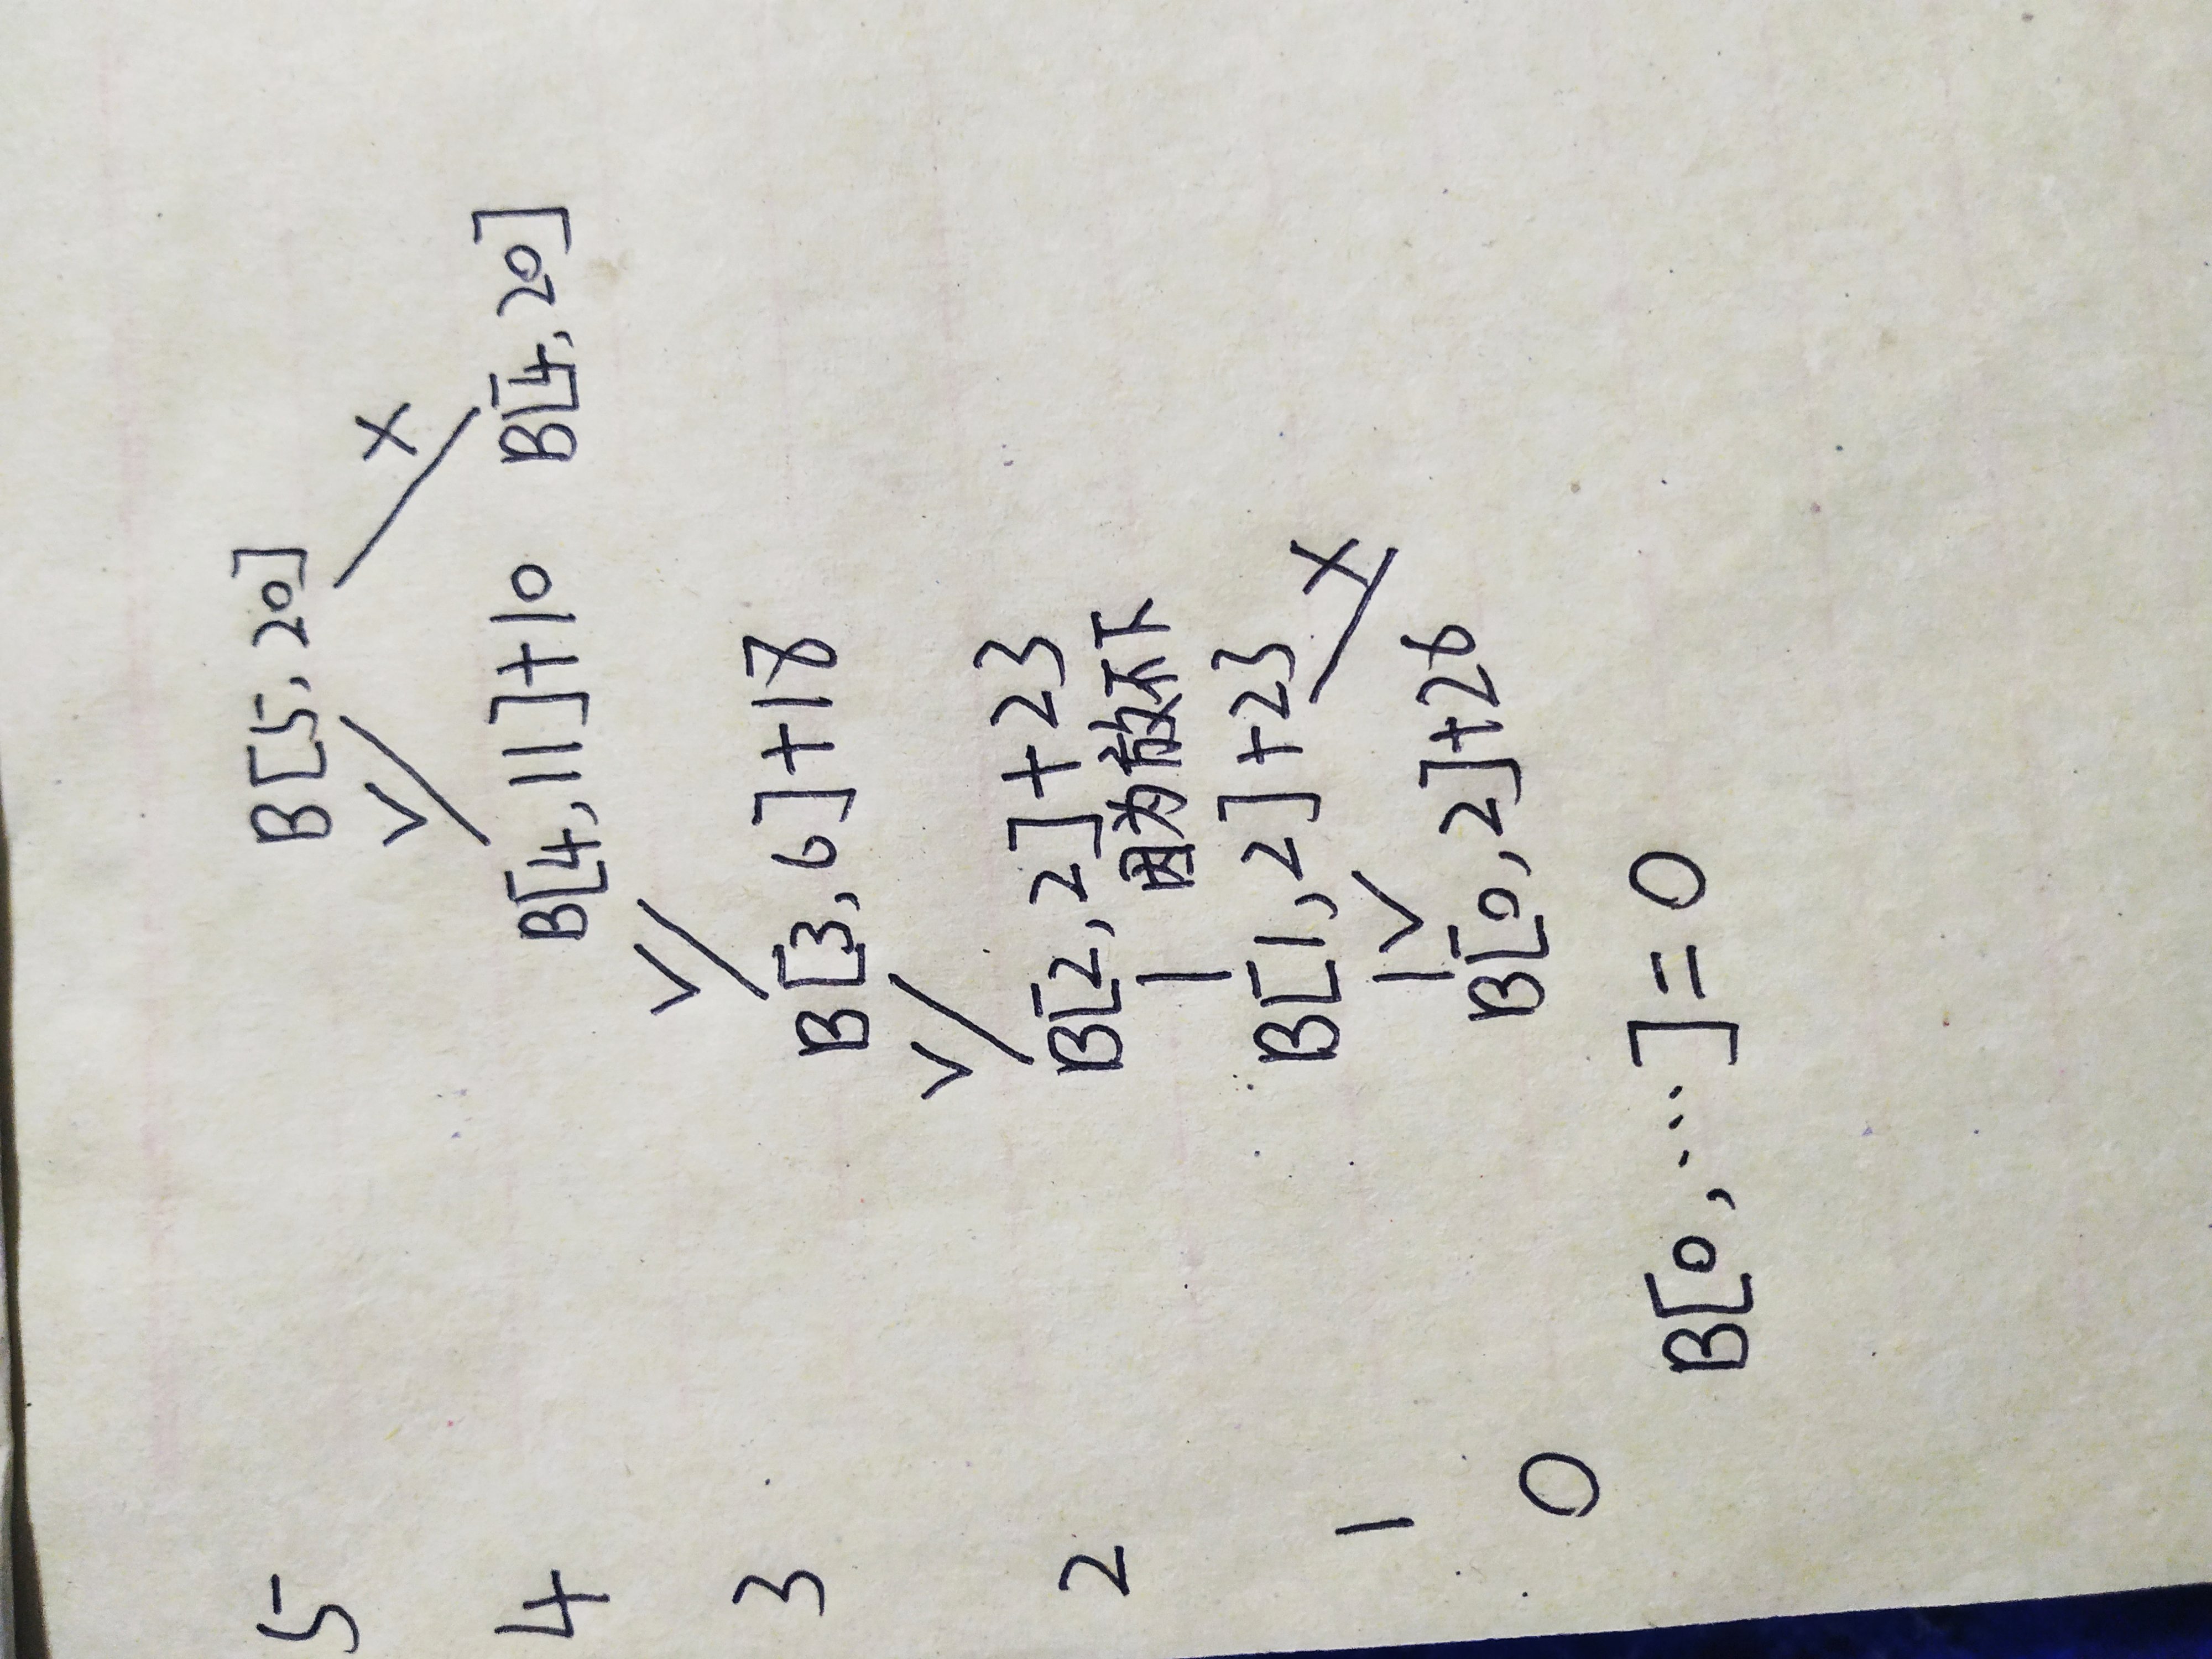 5 B[5,20]
√ X
4 B[4,11]+10 B[4,20]
√
3 B[3,6]+18
√
2 B[2,2]+23
因为放不下
1 B[1,2]+23
√ X
0 B[0,2]+26
B[0,……]=0